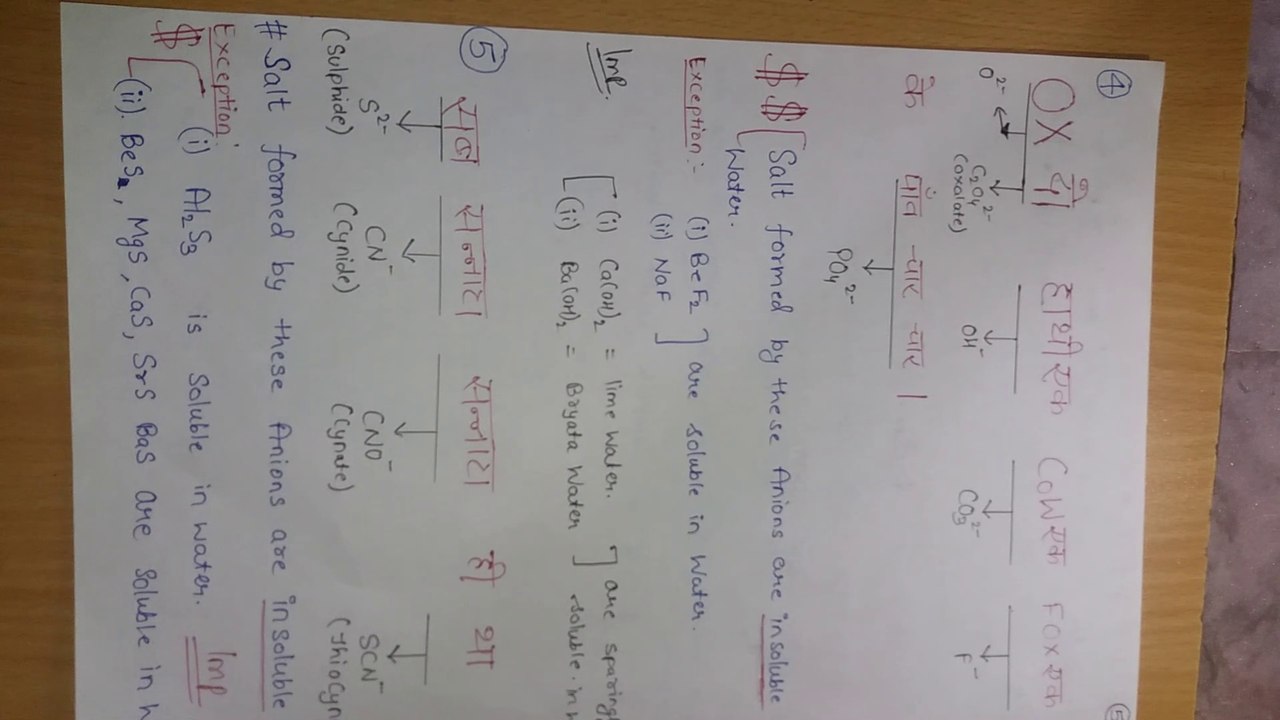 ④
OX दो हाथी एक Cow एक Fox एक
O²⁻ C₂O₄²⁻ OH⁻ CO₃²⁻ F⁻
(oxalate)
के पाँव चार चार ।
PO₄²⁻
$$ [Salt formed by these Anions are insoluble
Water.
Exception:- (i) BeF₂ ] are soluble in Water.
(ii) NaF
Imp. [(i) Ca(OH)₂ = lime Water. ] are sparingl
(ii) Ba(OH)₂ = Bryata Water soluble in
⑤ सन्नाटा सन्नाटा ही था
S²⁻ CN⁻ CNO⁻ SCN⁻
(Sulphide) (Cynide) (Cynate) (Thiocyn
# Salt formed by these Anions are insoluble
Exception:
$ (i) Al₂S₃ is soluble in water. Imp
(ii). BeS, MgS, CaS, SrS BaS are soluble in